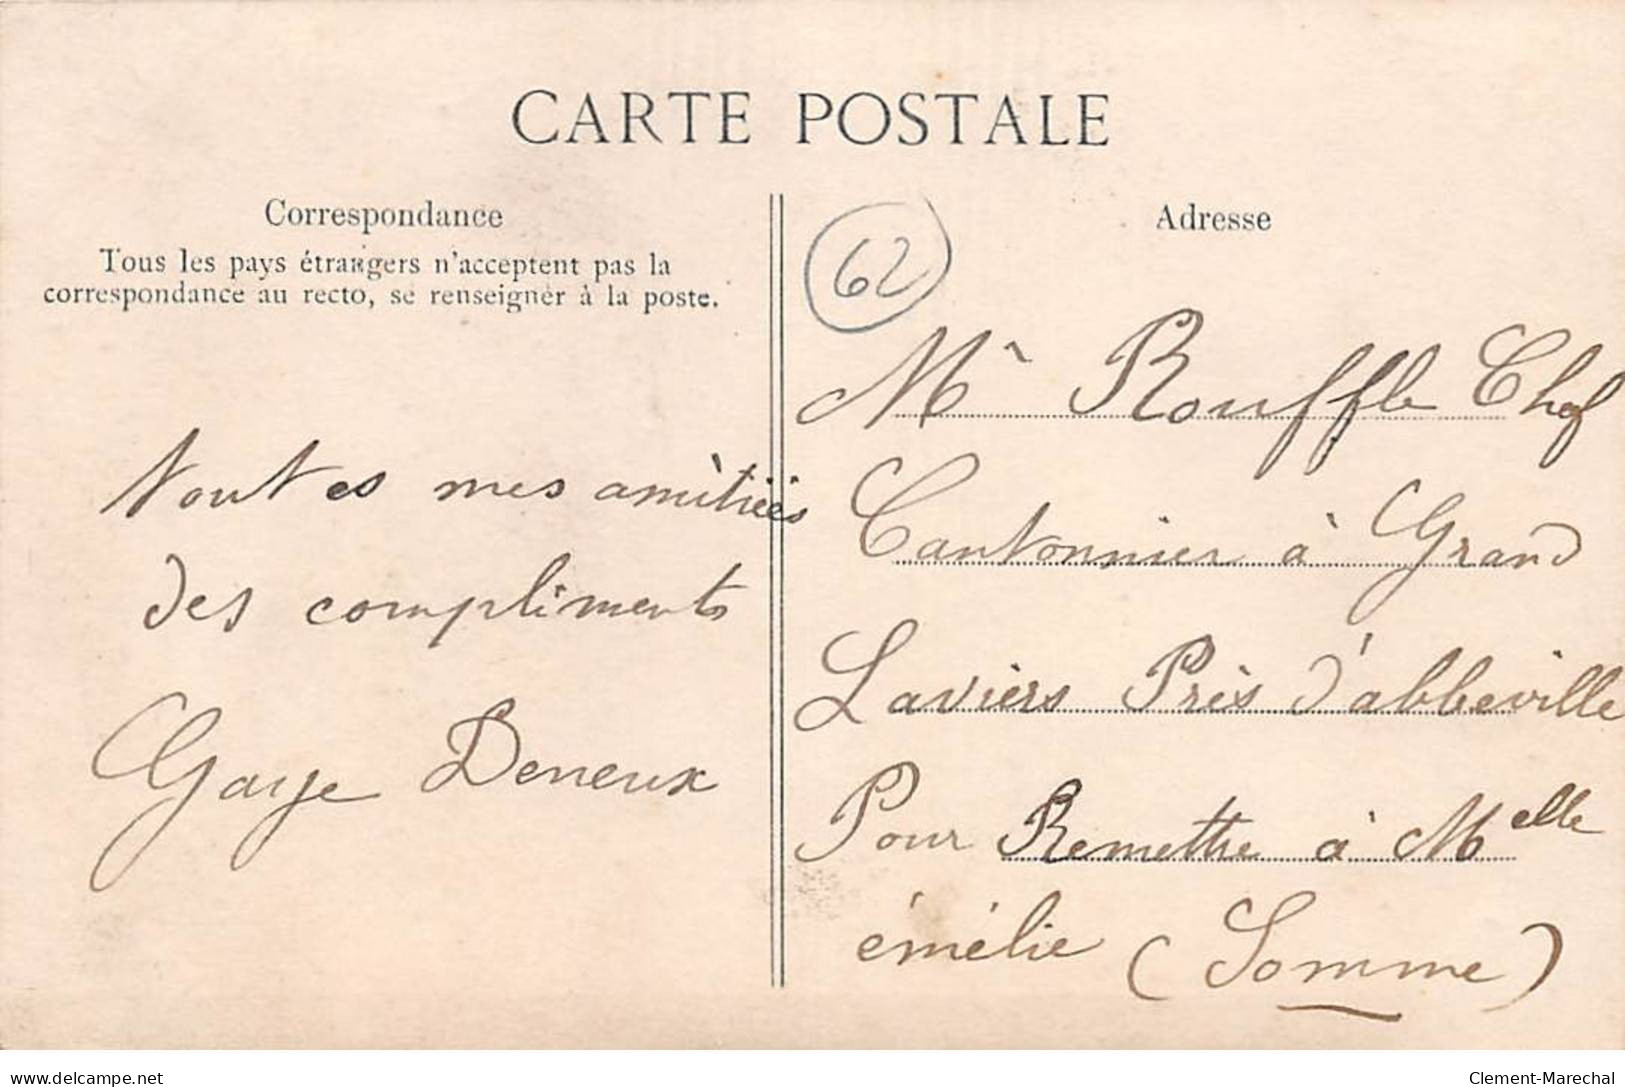 CARTE POSTALE
Correspondance
Tous les pays étrangers n'acceptent pas la
correspondance au recto, se renseigner à la poste.
Toutes mes amitiées
des compliments
Gaye Deneux
62
Adresse
Mr Rouffle Chef
Cantonnier à Grand
Laviers Près d'abbeville
Pour Remettre à Melle
émélie (Somme)
www.delcampe.net
Clement-Marechal